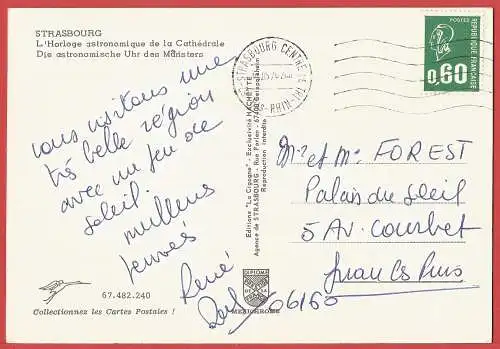 STRASBOURG
L'Horloge astronomique de la Cathédrale
Die astronomische Uhr des Münsters
nous visitons une
très belle région
avec un peu de
soleil.
meilleurs
René
67.482.240
Collectionnez les Cartes Postales !
Editions "La Cigogne" - Exclusivité HACHETTE
Agence de STRASBOURG - Rue Fortier - 67400 Geispolsheim
Reproduction interdite
DIPLOME
MEXICHROME
STRASBOURG CENTRE
BS-RHIN
POSTES
0,60
REPUBLIQUE FRANCAISE
Mr et Me FOREST
Palais du Soleil
5 AV. Courbet
Juan les Pins
06160